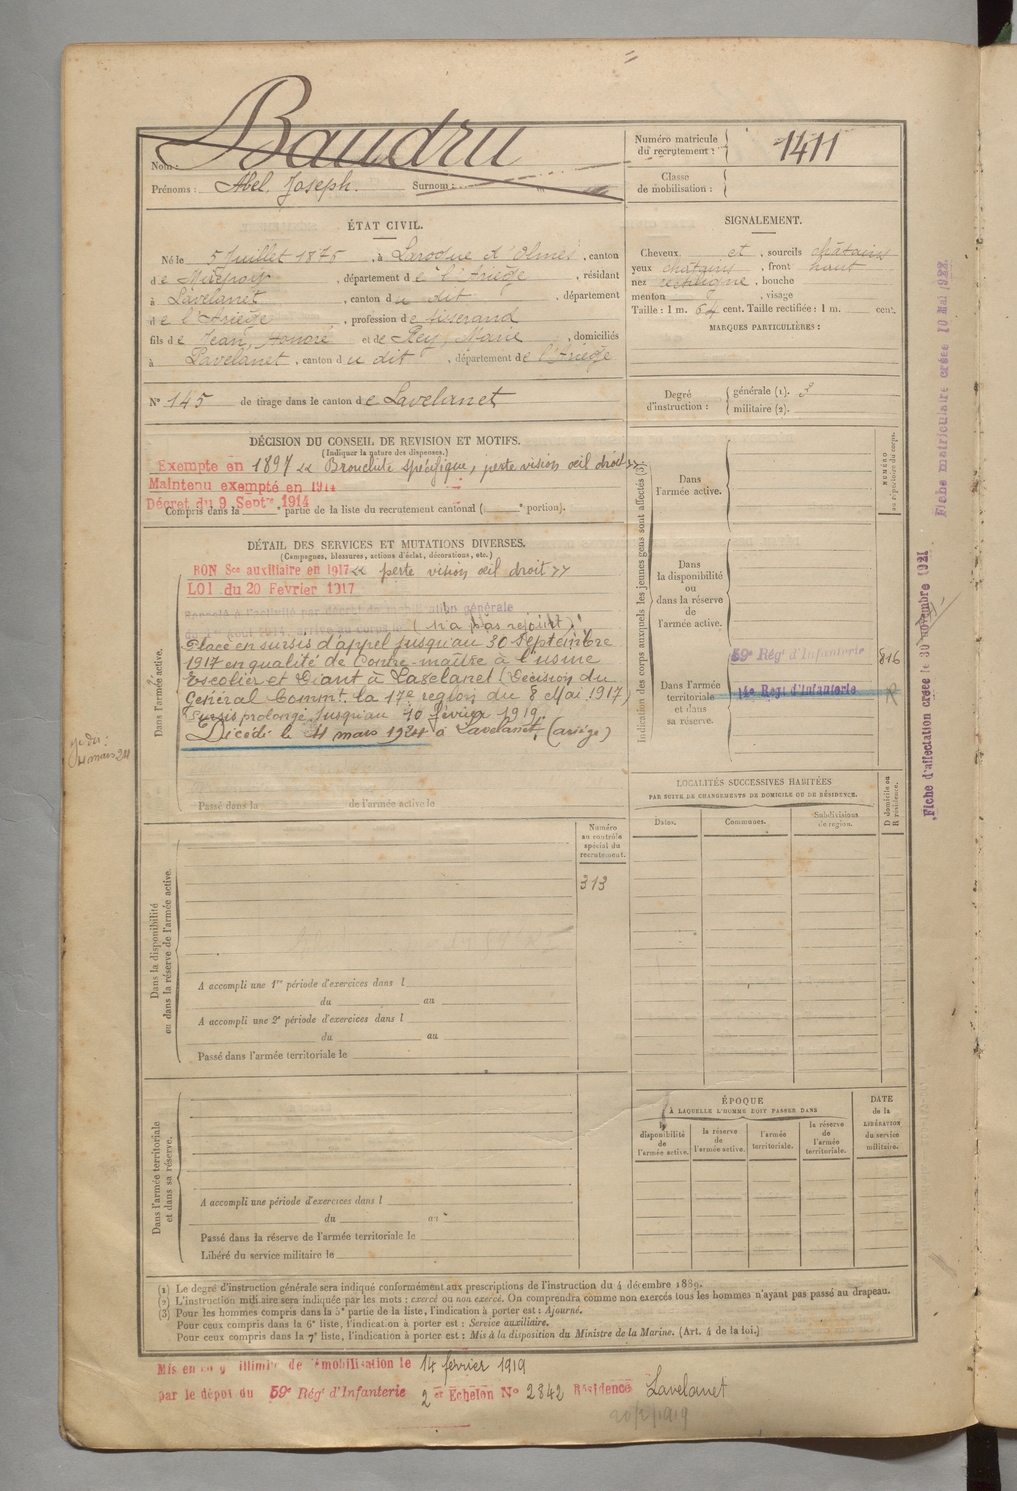 Nom : Baudru
Prénoms : Abel, Joseph. Surnom :
Numéro matricule du recrutement : 1411
Classe de mobilisation :
ÉTAT CIVIL.
Né le 5 Juillet 1875, à Laroque d'Olmes, canton
de Mirepoix, département de l'Ariège, résidant
à Lavelanet, canton du dit, département
de l'Ariège, profession de tisserand
fils de Jean, Honoré et de Rey, Marie, domiciliés
à Lavelanet, canton du dit, département de l'Ariège
N° 145 de tirage dans le canton de Lavelanet
SIGNALEMENT.
Cheveux et, sourcils châtains
yeux châtains, front haut
nez rectiligne, bouche
menton, visage
Taille : 1 m. 64 cent. Taille rectifiée : 1 m. cent.
MARQUES PARTICULIÈRES :
Degré d'instruction : générale (1). 3
militaire (2).
DÉCISION DU CONSEIL DE REVISION ET MOTIFS.
(Indiquer la nature des dispenses.)
Exempte en 1897 << Bronchite spécifique, perte vision œil droit >>
Maintenu exempté en 1914
Décret du 9 Septre 1914
Compris dans la e partie de la liste du recrutement cantonal ( e portion).
DÉTAIL DES SERVICES ET MUTATIONS DIVERSES.
(Campagnes, blessures, actions d'éclat, décorations, etc.)
BON Sce auxiliaire en 1917 << perte vision œil droit >>
LOI du 20 Février 1917
Rappelé à l'activité par décret de mobilisation générale
du 1er août 1914, arrivé au corps le (n'a pas rejoint)
Placé en sursis d'appel jusqu'au 30 Septembre
1917 en qualité de Contre-maître à l'usine
Escolier et Diant à Lavelanet (Décision du
Général Commt. la 17e region du 8 Mai 1917)
Sursis prolongé jusqu'au 10 février 1919,
Décédé le 4 mars 1924 à Lavelanet, (ariège)
4 mars 24
Dans l'armée active.
Passé dans la de l'armée active le
Indication des corps auxquels les jeunes gens sont affectés (3).
Dans l'armée active.
Dans la disponibilité ou dans la réserve de l'armée active.
Dans l'armée territoriale et dans sa réserve.
59e Régt d'Infanterie 816
14e Regt d'Infanterie R
NUMÉRO au répertoire du corps.
Fiche d'affectation créée le 30 novembre 1921
Fiche matriculaire créée 10 Mai 1922
LOCALITÉS SUCCESSIVES HABITÉES
PAR SUITE DE CHANGEMENTS DE DOMICILE OU DE RÉSIDENCE.
Dates. Communes. Subdivisions de région. D domicile ou R résidence.
Dans la disponibilité ou dans la réserve de l'armée active.
Numéro au contrôle spécial du recrutement.
313
A accompli une 1re période d'exercices dans l
du au
A accompli une 2e période d'exercices dans l
du au
Passé dans l'armée territoriale le
Dans l'armée territoriale et dans sa réserve.
A accompli une période d'exercices dans l
du au
Passé dans la réserve de l'armée territoriale le
Libéré du service militaire le
ÉPOQUE
À LAQUELLE L'HOMME DOIT PASSER DANS
la disponibilité de l'armée active. la réserve de l'armée active. l'armée territoriale. la réserve de l'armée territoriale.
DATE de la LIBÉRATION du service militaire.
(1) Le degré d'instruction générale sera indiqué conformément aux prescriptions de l'instruction du 4 décembre 1889.
(2) L'instruction militaire sera indiquée par les mots : exercé ou non exercé. On comprendra comme non exercés tous les hommes n'ayant pas passé au drapeau.
(3) Pour les hommes compris dans la 5e partie de la liste, l'indication à porter est : Ajourné.
Pour ceux compris dans la 6e liste, l'indication à porter est : Service auxiliaire.
Pour ceux compris dans la 7e liste, l'indication à porter est : Mis à la disposition du Ministre de la Marine. (Art. 4 de la loi.)
Mis en congé illimité de démobilisation le 14 février 1919
par le dépot du 59e Régt d'Infanterie 2 et Echelon N° 2842 Résidence Lavelanet
20/2/1919